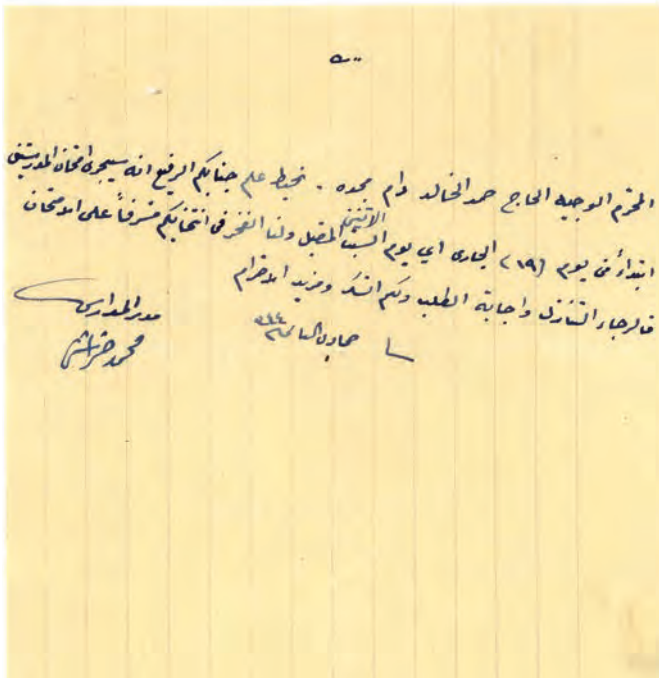 المحترم الوجيه الحاج حمد الخالد دام مجده . نحيط علم جنابكم الرفيع انه سيجرى امتحان المدرستين
ابتداءً من يوم (١٩) الجارى اي يوم السبت الاثنين المقبل ولنا الفخر في انتخابكم مشرفاً على الامتحان
فالرجاء التنازل واجابة الطلب ولكم الشكر ومزيد الاحترام
مدير المدارس
محمد خراشي